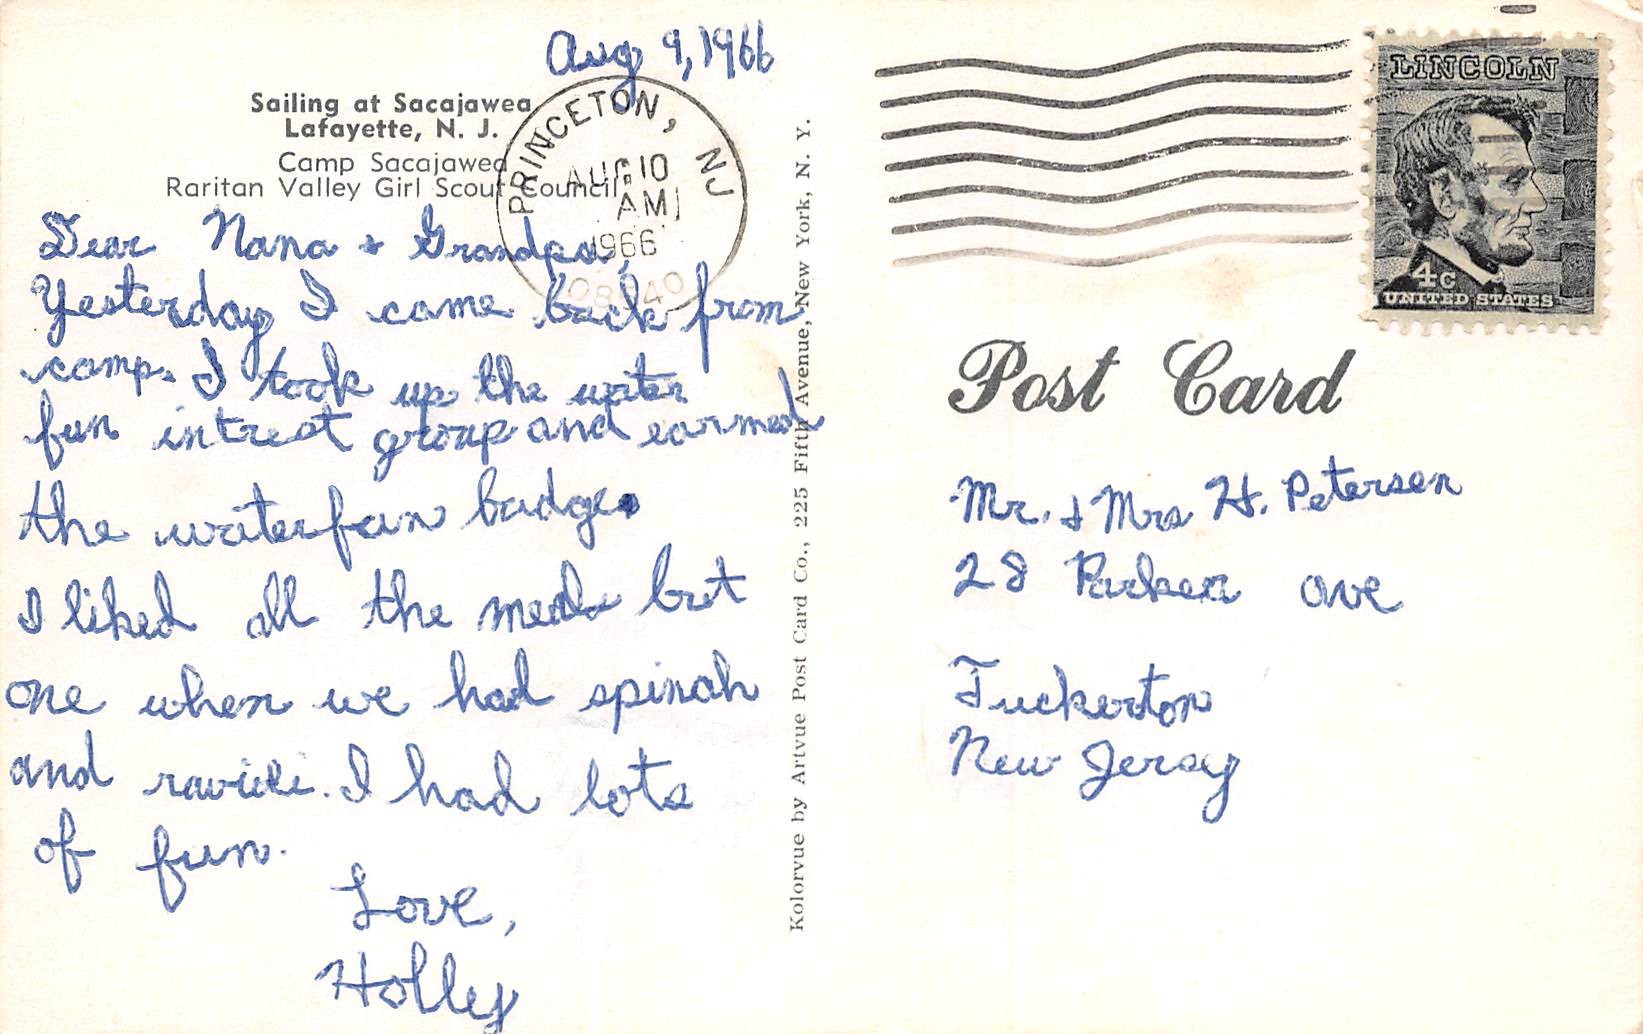 Aug 9, 1966
Sailing at Sacajawea
Lafayette, N. J.
Camp Sacajawea
Raritan Valley Girl Scout Council
PRINCETON, NJ
AUG 10
AM
1966
08540
Dear Nana & Grandpa,
Yesterday I came back from
camp. I took up the water
fun intrest group and earned
the waterfun badge.
I liked all the meals but
one when we had spinah
and ravioli. I had lots
of fun.
Love,
Holley
Kolorvue by Artvue Post Card Co., 225 Fifth Avenue, New York, N. Y.
LINCOLN
4c
UNITED STATES
Post Card
Mr. & Mrs H. Petersen
28 Parker ave
Tuckerton
New Jersey